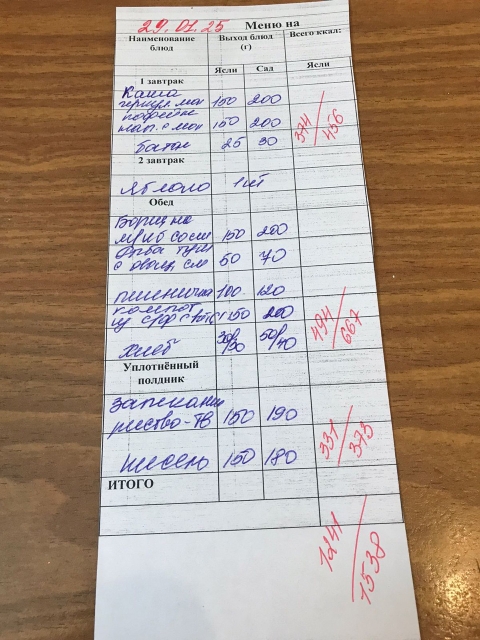 29.01.25 Меню на
Наименование блюд Выход блюд (г) Всего ккал:
Ясли Сад Ясли
1 завтрак
Каша
геркул. мол 150 200
нап. с мол 150 200 374/456
батон 25 30
2 завтрак
Яблоко 1шт
Обед
Борщ на
150 200
с овощ, см 60 70
пшеничная 100 120
компот
150 200 494/667
хлеб 30/30 50/40
Уплотнённый
полдник
запеканка
рисово-тв 150 190 331/373
кисель 150 180
ИТОГО
1241/1538